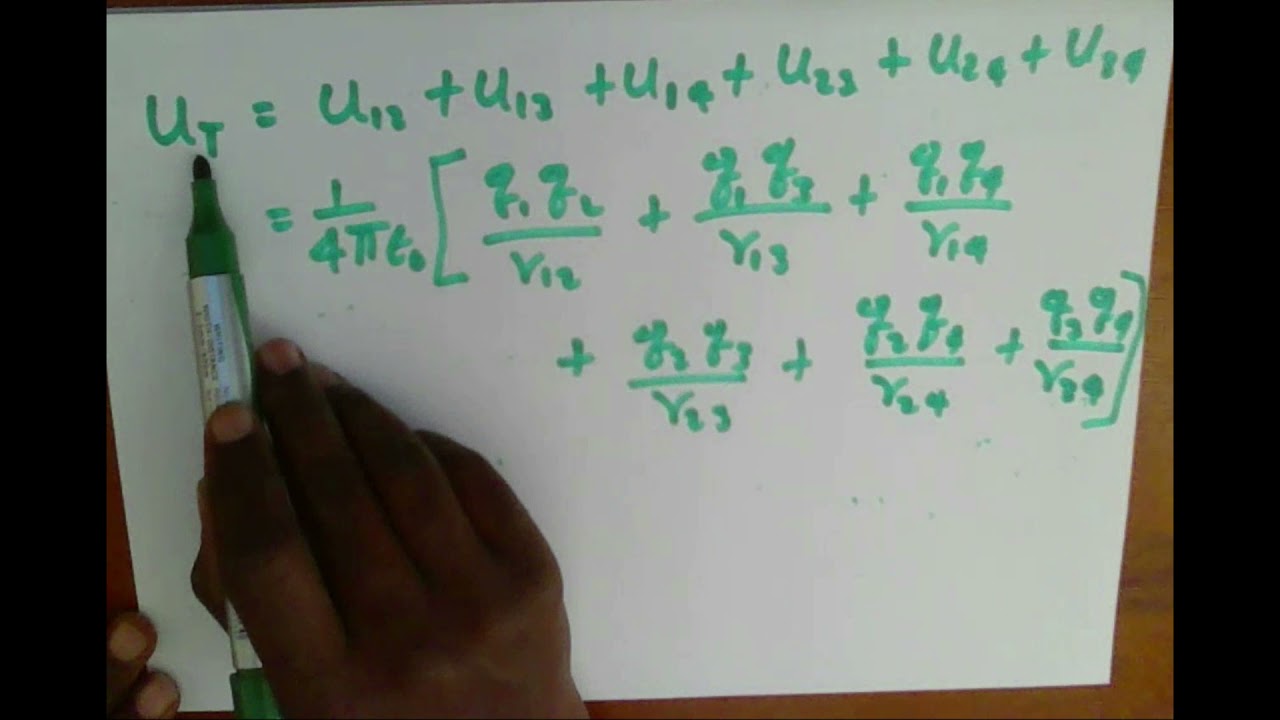 U_T = U_12 + U_13 + U_14 + U_23 + U_24 + U_34
= 1/4πε₀ [ q_1 q_2 / r_12 + q_1 q_3 / r_13 + q_1 q_4 / r_14
+ q_2 q_3 / r_23 + q_2 q_4 / r_24 + q_3 q_4 / r_34 ]